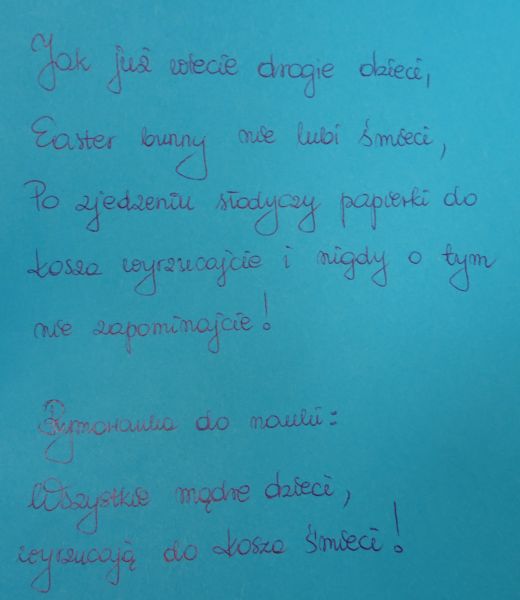 Jak już wiecie drogie dzieci,
Easter bunny nie lubi śmieci,
Po zjedzeniu słodyczy papierki do
kosza wyrzucajcie i nigdy o tym
nie zapominajcie!
Rymowanka do nauki:
Wszystkie mądre dzieci,
wyrzucają do kosza śmieci!